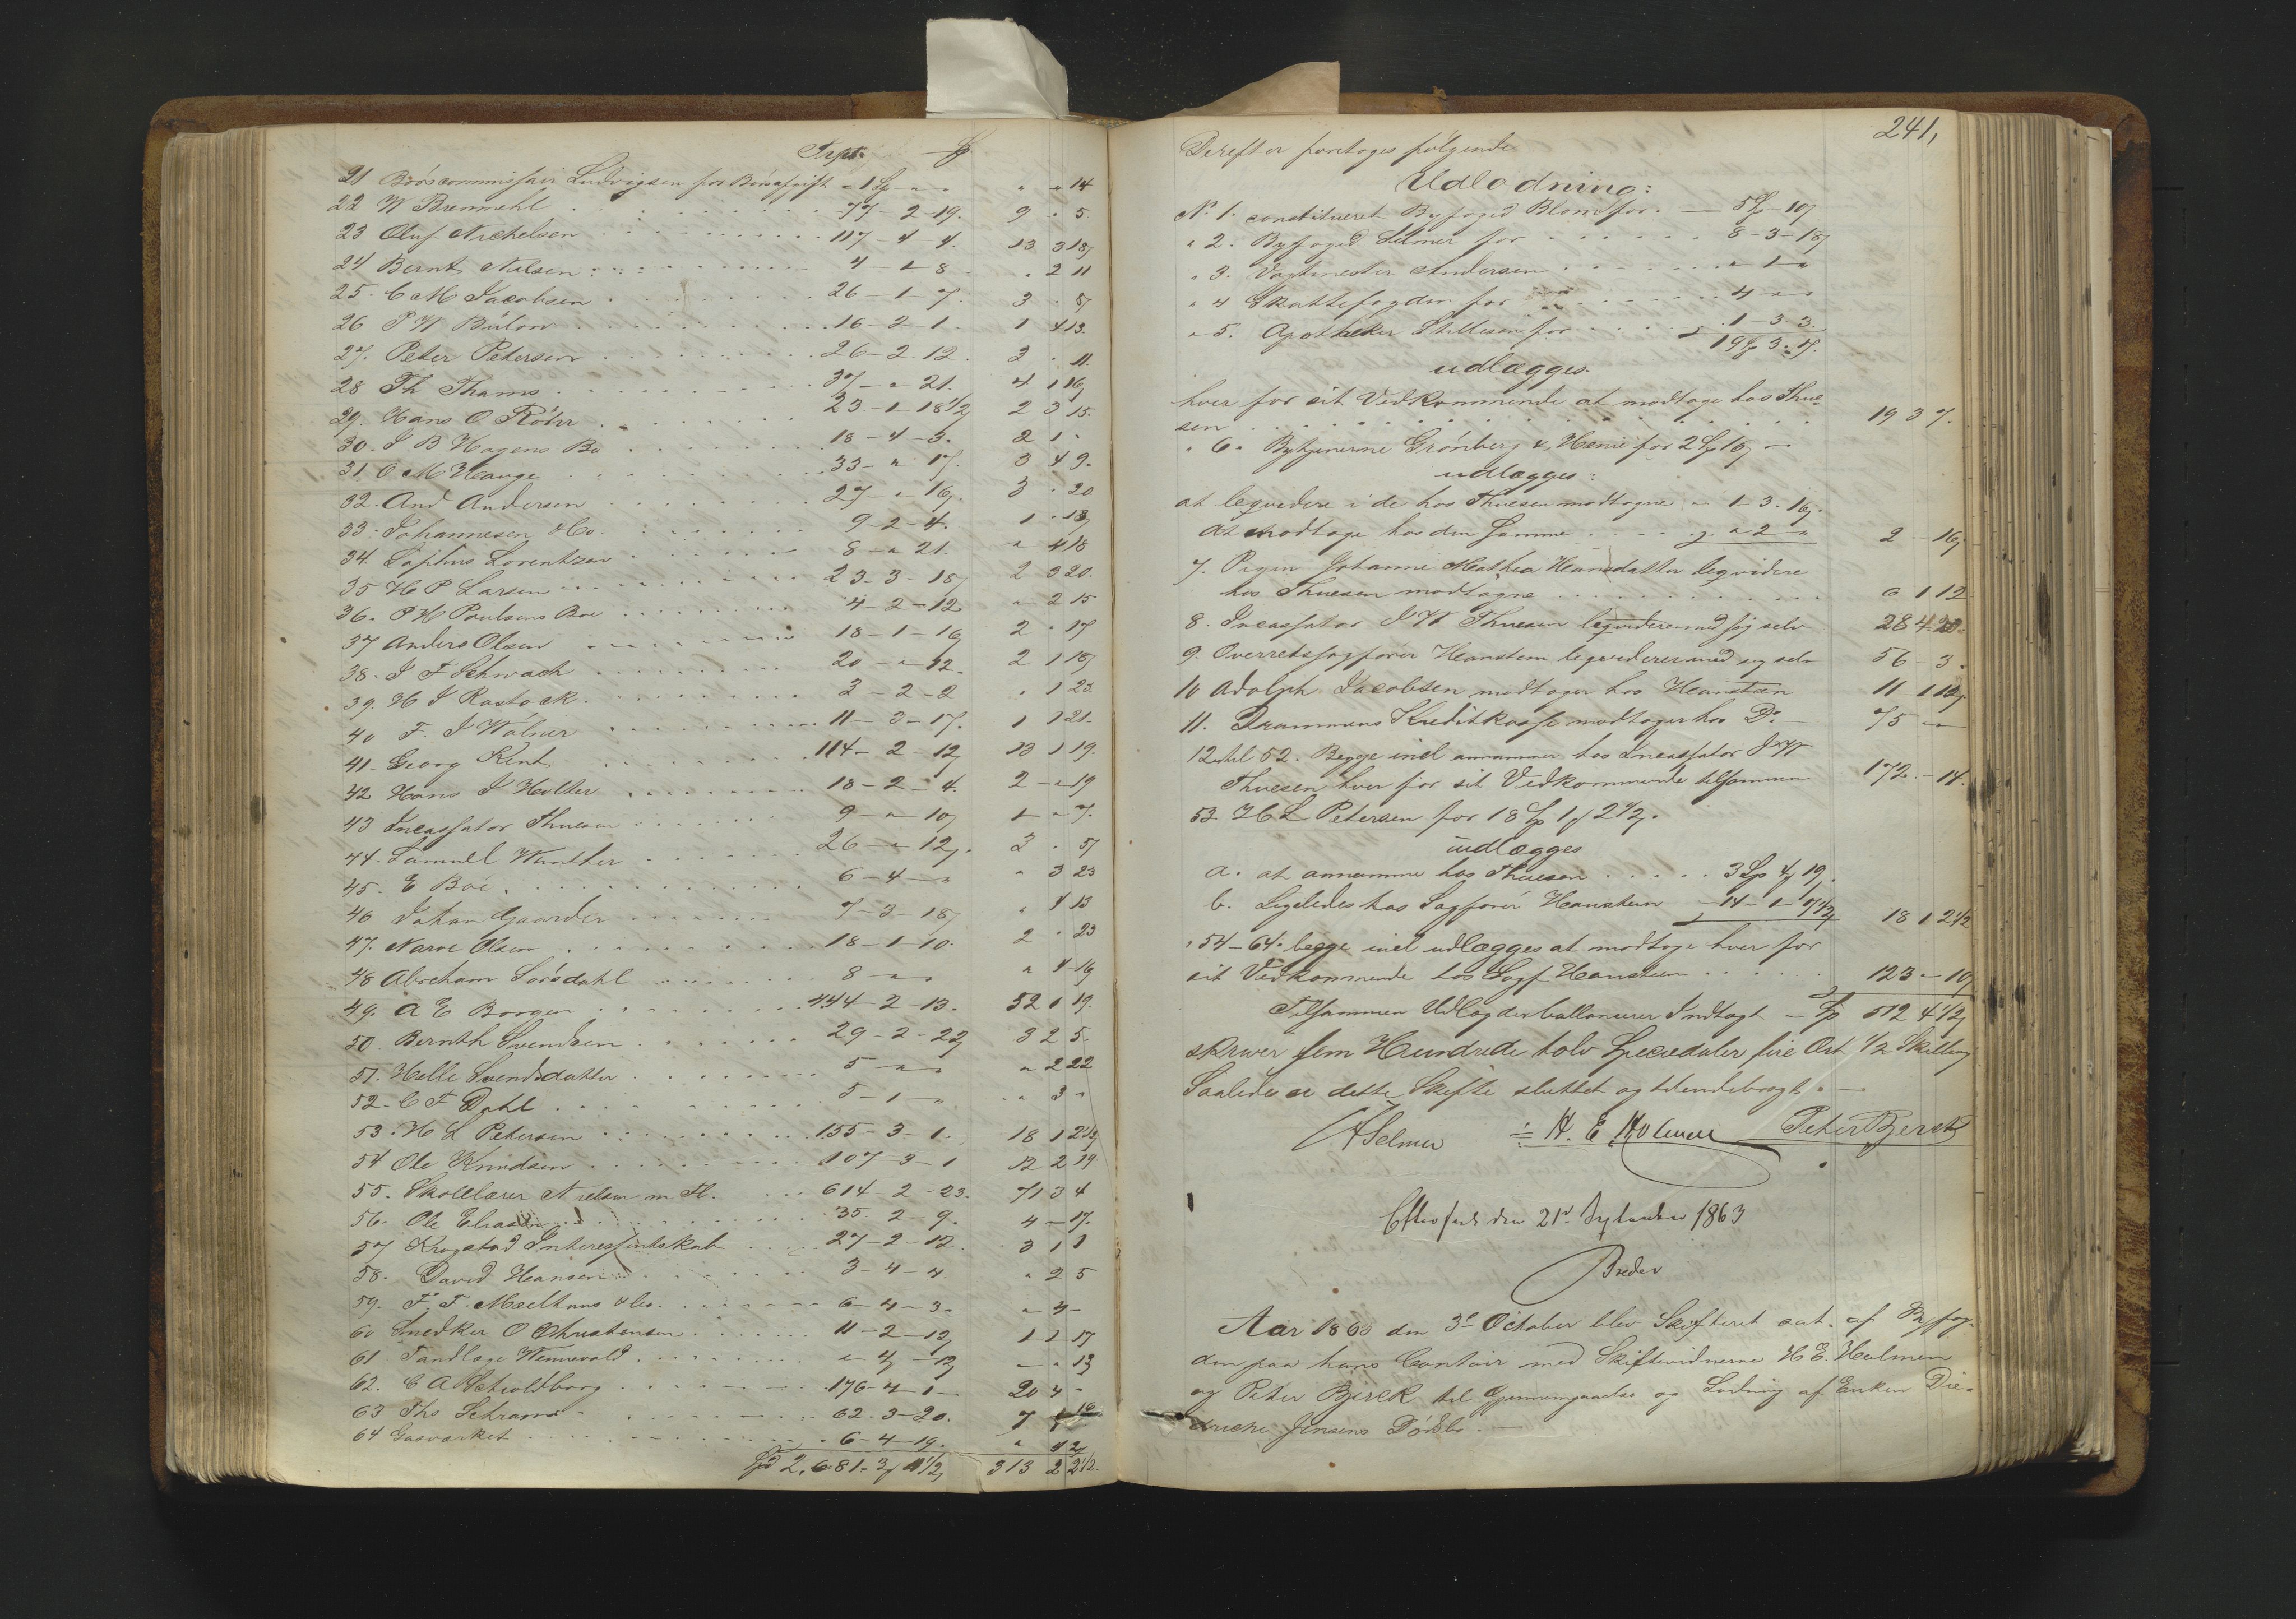 Trpt. Sp.
21 Börscommissair Ludvigsen for Börsafgift " 1 Sp " " " " 14
22 W Bremmehl . . . 77 - 2 - 19. 9 " 5.
23 Oluf Michelsen . . . 117 - 4 - 4. 13 3 18
24 Bernt Nilsen . . . 4 - 1 - 8 " 2 11
25. C M Jacobsen . . . 26 - 1 - 7. 3 " 5
26 P W Bülow . . . 16 - 2 - 1. 1 4 13.
27. Peter Petersen . . . 26 - 2 12. 3 " 11.
28 Th Thams . . . 37 - " 21. 4 1 16
29. Hans O. Röhr . . . 23 - 1 - 18 1/2 2 3 15.
30. J B Hagens Bo . . . 18 - 4 - 3. 2 1 "
31 O M Hauge . . . 33 - " 17. 3 4 9.
32. And Andersen . . . 27 - " 16. 3 " 20
33. Johannesen & Co. . . . 9 - 2 - 4. 1 " 18
34. Sophus Lorentzen . . . 8 - " 21. " 4 18
35 H P Larsen . . . 23 - 3 - 18 2 3 20.
36. P H Poulsens Bo . . . 4 - 2 - 12. " 2 15
37 Anders Olsen . . . 18 - 1 - 16 2 " 17
38. J F Schwach . . . 20 - " 12. 2 1 18
39. H J Rastock . . . 3 - 2 - 2 " 1 23.
40 F. J Wölner . . . 11 - 3 - 17. 1 1 21.
41. Georg Kent . . . 114 - 2 - 12 13 1 19.
42 Hans J Holter . . . 18 - 2 - 4. 2 - " 19
43 Incassator Thuesen . . . 9 - " 10 1 - " 7.
44. Samuel Wunther . . . 26 - " 12. 3 " 5
45. E Boe . . . 6 - 4 - " " 3 23
46 Johan Gaarder . . . 7 - 3 - 18 " 4 13
47. Narve Olsen . . . 18 - 1 - 10. 2 " 23
48 Abraham Sörsdahl . . . 8 - " " " 4 16
49. A E Borgen . . . 444 - 2 - 13. 52 1 19.
50. Bernth Svendsen . . . 29 - 2 - 22 3 2 5.
51. Helle Svendsdatter . . . 5 - " " " 2 22
52. C F Dahl . . . 5 - 1 - " " 3 "
53. H L Petersen . . . 155 - 3 - 1. 18 1 2 1/2
54 Ole Knudsen . . . 107 - 3 - 1 12 2 19
55. Skolelærer Nielsen m Fl. . . . 614 - 2 - 23. 71 3 4
56. Ole Eliasen . . . 35. 2 - 9. 4 - 17.
57 Krogstad Interessentskab . . . 27 - 2 - 12. 3 1 1
58. David Hansen . . . 3 - 4 - 4. " 2 5
59. F. F. Melthuus & Co. . . . 6 - 4 - 3. " 4 -
60 Snedker O Christensen . . . 11 - 2 - 12 1 1 - 17
61 Tandlæge Wennevold . . . " 4 - 12 - " 13
62. C A Schioldborg . . . 176 - 4 - 1 - 20 4 "
63 Ths Schram . . . 62. 3 - 20. 7 1 10
64 Gasværket . . . 6 - 4 - 19. " 4 2
Spd 2,681 - 3 11 1/2 313 2 2 1/2.
241,
Derefter foretoges følgende
Udlodning:
No 1. constitueret Byfoged Blom for. — 5 Sp - 10
" 2. Byfoged Selmer for . . . 8 - 3 - 18
" 3. Vagtmester Andersen . . . " 1 - "
" 4 Skattefogden for . . . 4 - " "
" 5. Apotheker Stillesen for . . . 1 - 3 3.
19 Sp 3 - 7.
udlægges.
hver for sit Vedkommende at modtage hos Thue-
sen . . . 19 3 7.
" 6. Bytjenerne Grönberg & Henie for 2 Sp 16 —
udlægges:
at leqvidere i de hos Thuesen modtagne " 1 - 3. 16.
at modtage hos den Samme . . . " 2 " 2 - 16
7. Pigen Johanne Mathea Hansdatter leqviderer
hos Thuesen modtagne . . . 6 1 12
8. Incassator J W Thuesen leqviderer med sig selv 28 4 20.
9. Overretssagfører Hansteen leqviderer med sig selv 56 - 3.
10 Adolph Jacobsen modtager hos Hansteen 11 1 12
11. Drammens Kreditkasse modtager hos Do — 75 " —
12 til 52. Begge incl annammer hos Incassator J W
Thuesen hver for sit Vedkommende tilsammen 172. - 14.
53. H L Petersen for 18 Sp 1 2 1/2.
udlægges
a. at annamme hos Thuesen . . . 3 Sp 4 19.
b. Ligeledes hos Sagfører Hansteen 14 - 1 - 7 1/2 18 1 2 1/2
" 54 - 64. begge incl udlægges at modtage hver for
sit Vedkommende hos Sagf Hansteen . . . 123 - 10
Tilsammen Udlæg der ballancerer Indtægt — Sp 512 4 1/2
skriver fem Hundrede tolv Speciedaler fire Ort 1/2 Skilling
Saaledes er dette Skifte sluttet og tilendebragt. —
Selmer H. E. Holmen Peter Bjerck
Efterseet den 21de September 1863
Breder
Aar 1863 den 3de October blev Skifteret sat af Byfog-
den paa hans Contoir med Skiftevidnerne H E. Holmen
og Peter Bjerck til Gjennemgaaelse og Lodning af Enken Die-
dricke Jensens Dödsbo. —